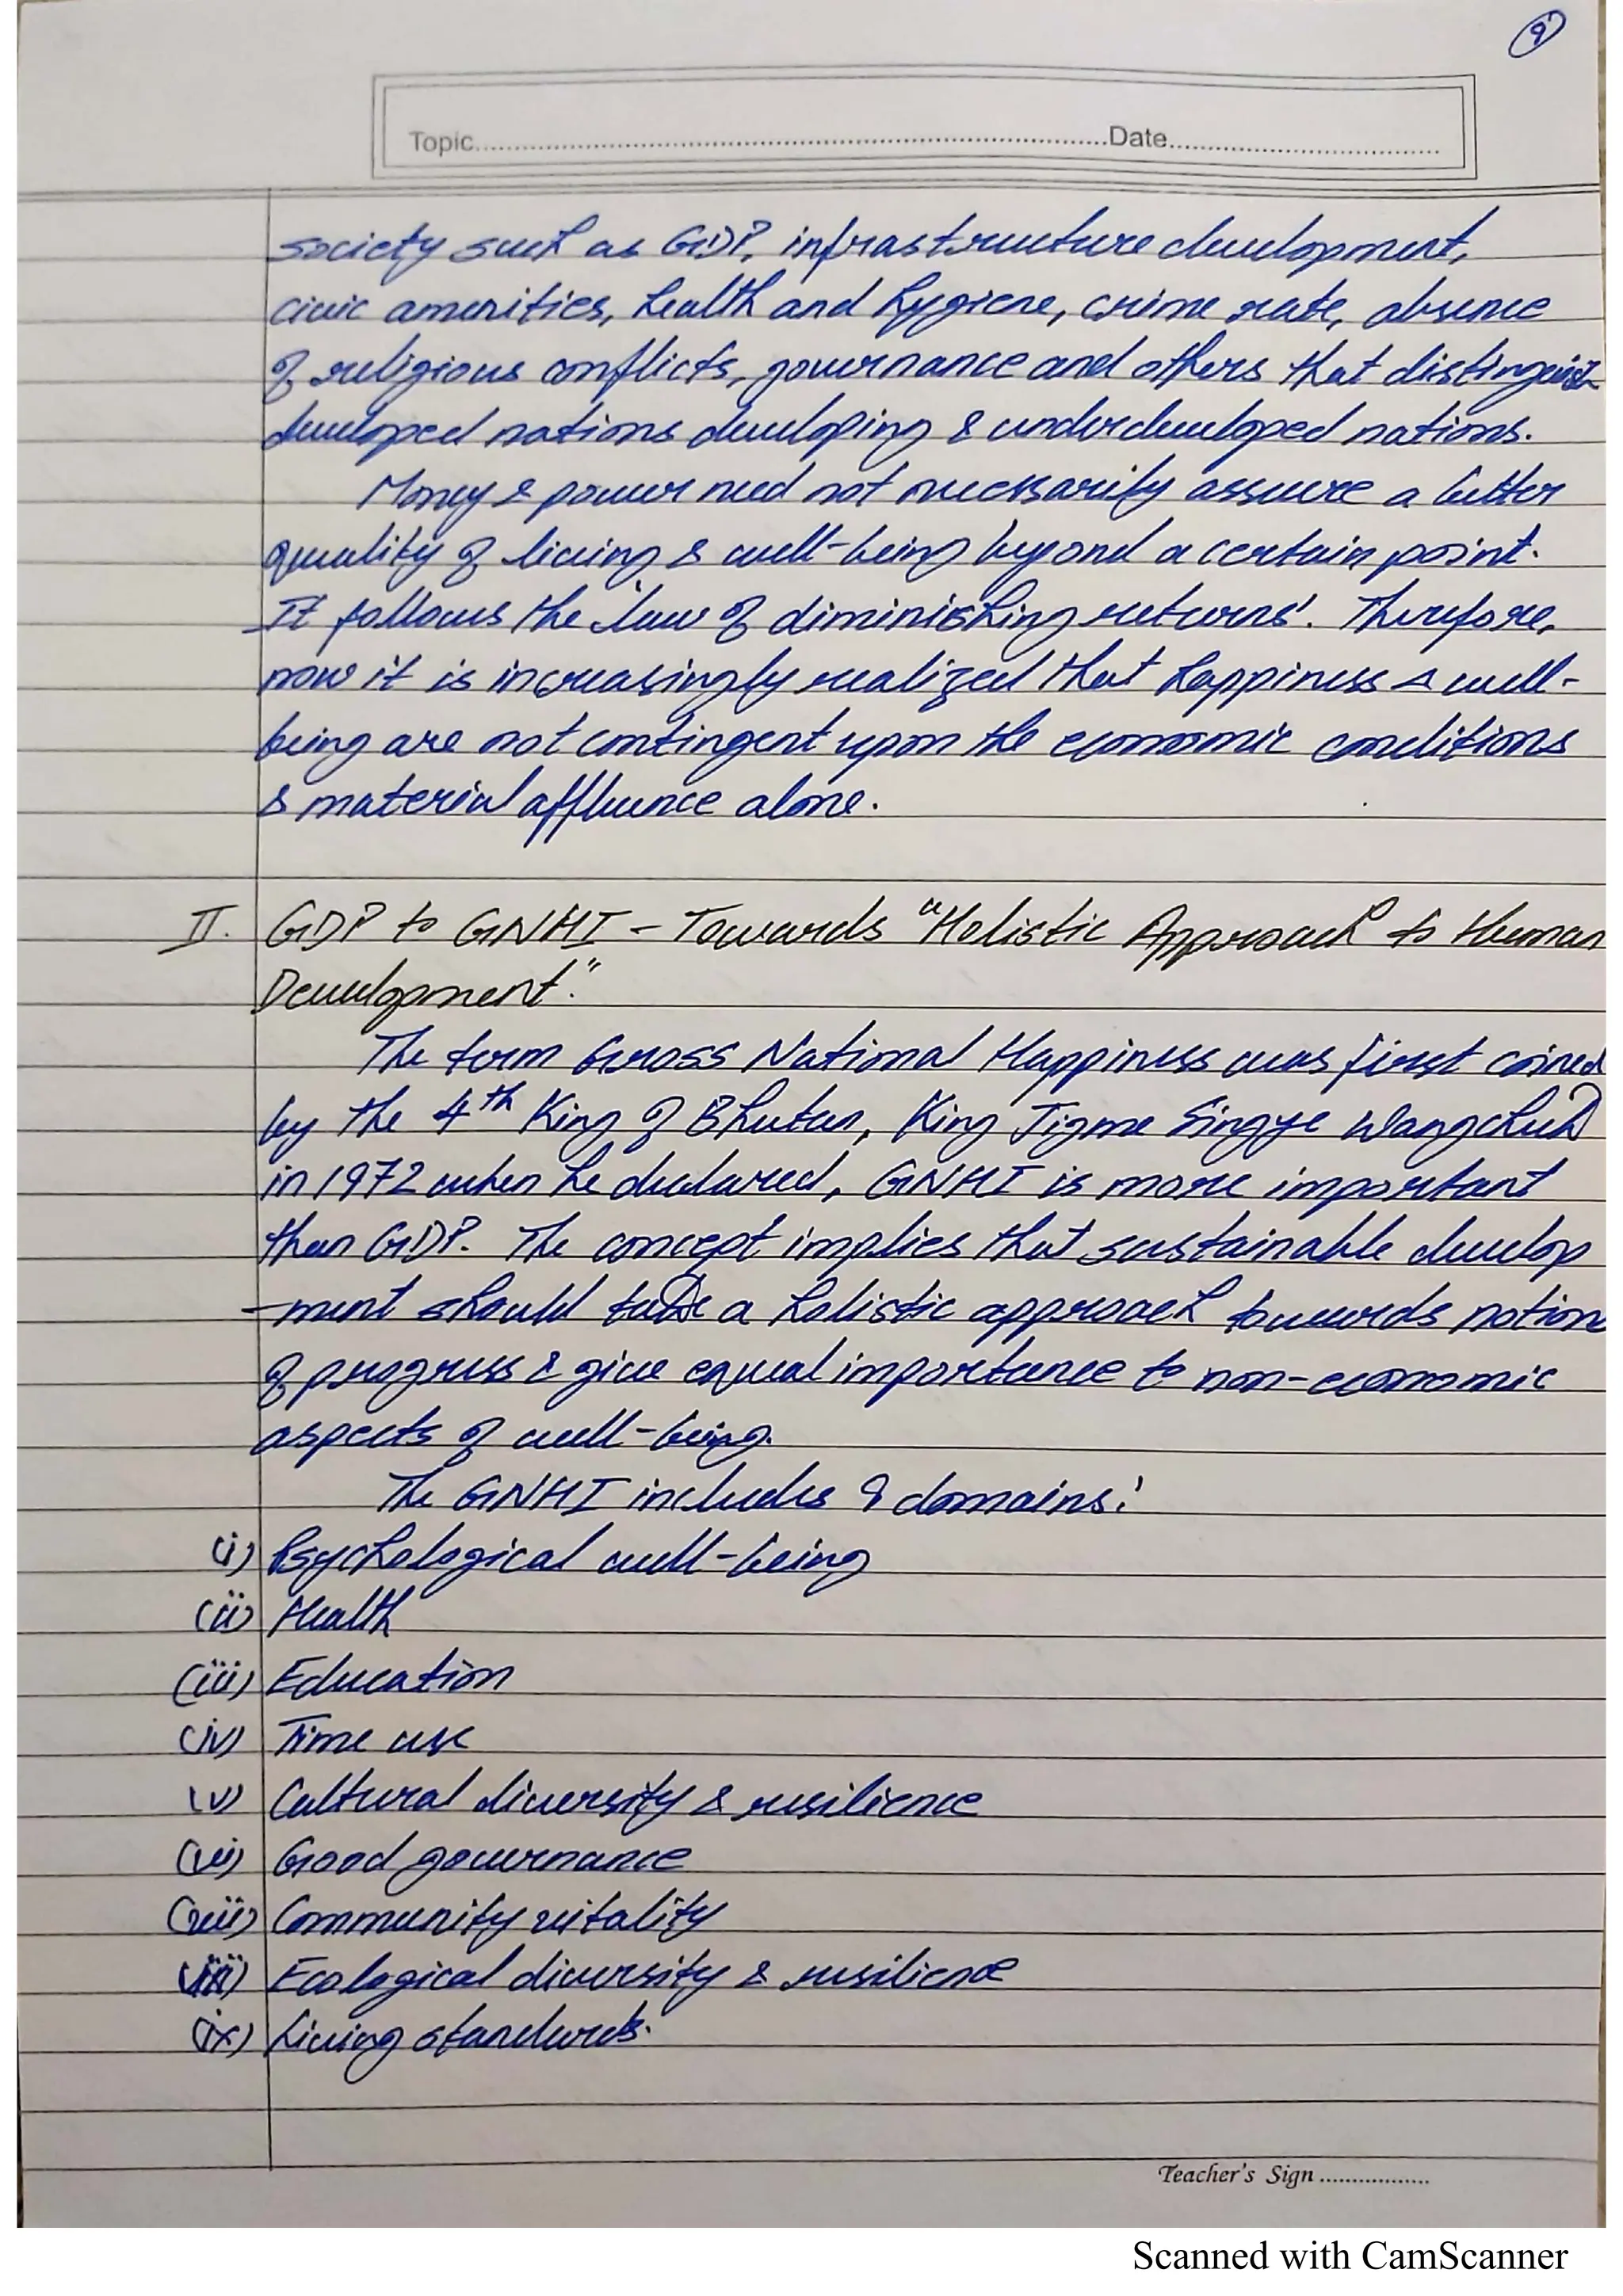 9
Topic..............................Date..............................
society such as GDP, infrastructure development,
civic amenities, health and hygiene, crime rate, absence
of religious conflicts, governance and others that distinguish
developed nations developing & underdeveloped nations.
Money & power need not necessarily assure a better
quality of living & well-being beyond a certain point.
It follows the 'law of diminishing returns'. Therefore,
now it is increasingly realized that happiness & well-
being are not contingent upon the economic conditions
& material affluence alone.
II. GDP to GNHI - Towards "Holistic Approach to Human
Development".
The term Gross National Happiness was first coined
by the 4th King of Bhutan, King Jigme Singye Wangchuk
in 1972 when he declared, GNHI is more important
than GDP. The concept implies that sustainable develop
-ment should take a holistic approach towards notion
of progress & give equal importance to non-economic
aspects of well-being.
The GNHI includes 9 domains:
(i) Psychological well-being
(ii) Health
(iii) Education
(iv) Time use
(v) Cultural diversity & resilience
(vi) Good governance
(vii) Community vitality
(viii) Ecological diversity & resilience
(ix) Living standards.
Teacher's Sign ..................
Scanned with CamScanner